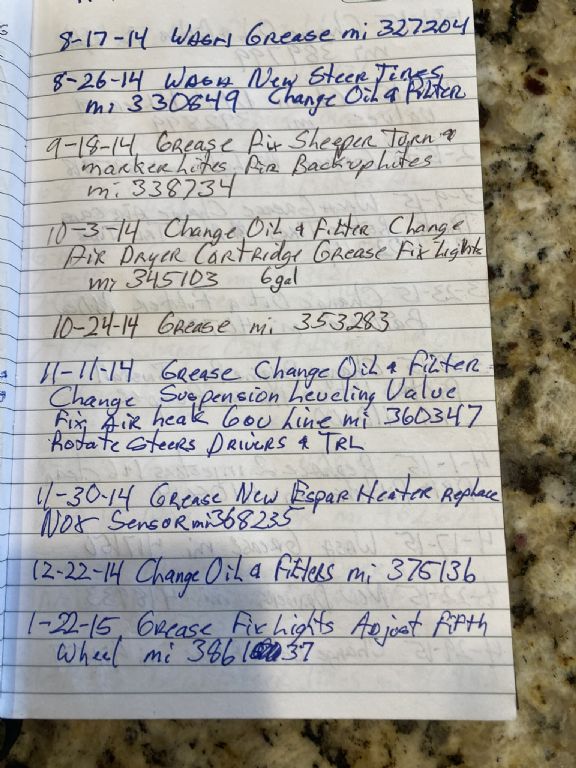 8-17-14 WASH Grease mi 327204
8-26-14 WASH New Steer Tires
mi 330849 Change Oil & Filter
9-18-14 Grease Fix Sleeper Turn &
marker Lites Fix Backup Lites
mi 338734
10-3-14 Change Oil & Filter Change
Air Dryer Cartridge Grease Fix Lights
mi 345103 6gal
10-24-14 Grease mi 353283
11-11-14 Grease Change Oil & Filter
Change Suspension Leveling Value
Fix Air Leak Gov Line mi 360347
Rotate Steers Drivers & TRL
11-30-14 Grease New Espar Heater Replace
NOX Sensor mi 368235
12-22-14 Change Oil & Filters mi 376136
1-22-15 Grease Fix Lights Adjust Fifth
Wheel mi 386137